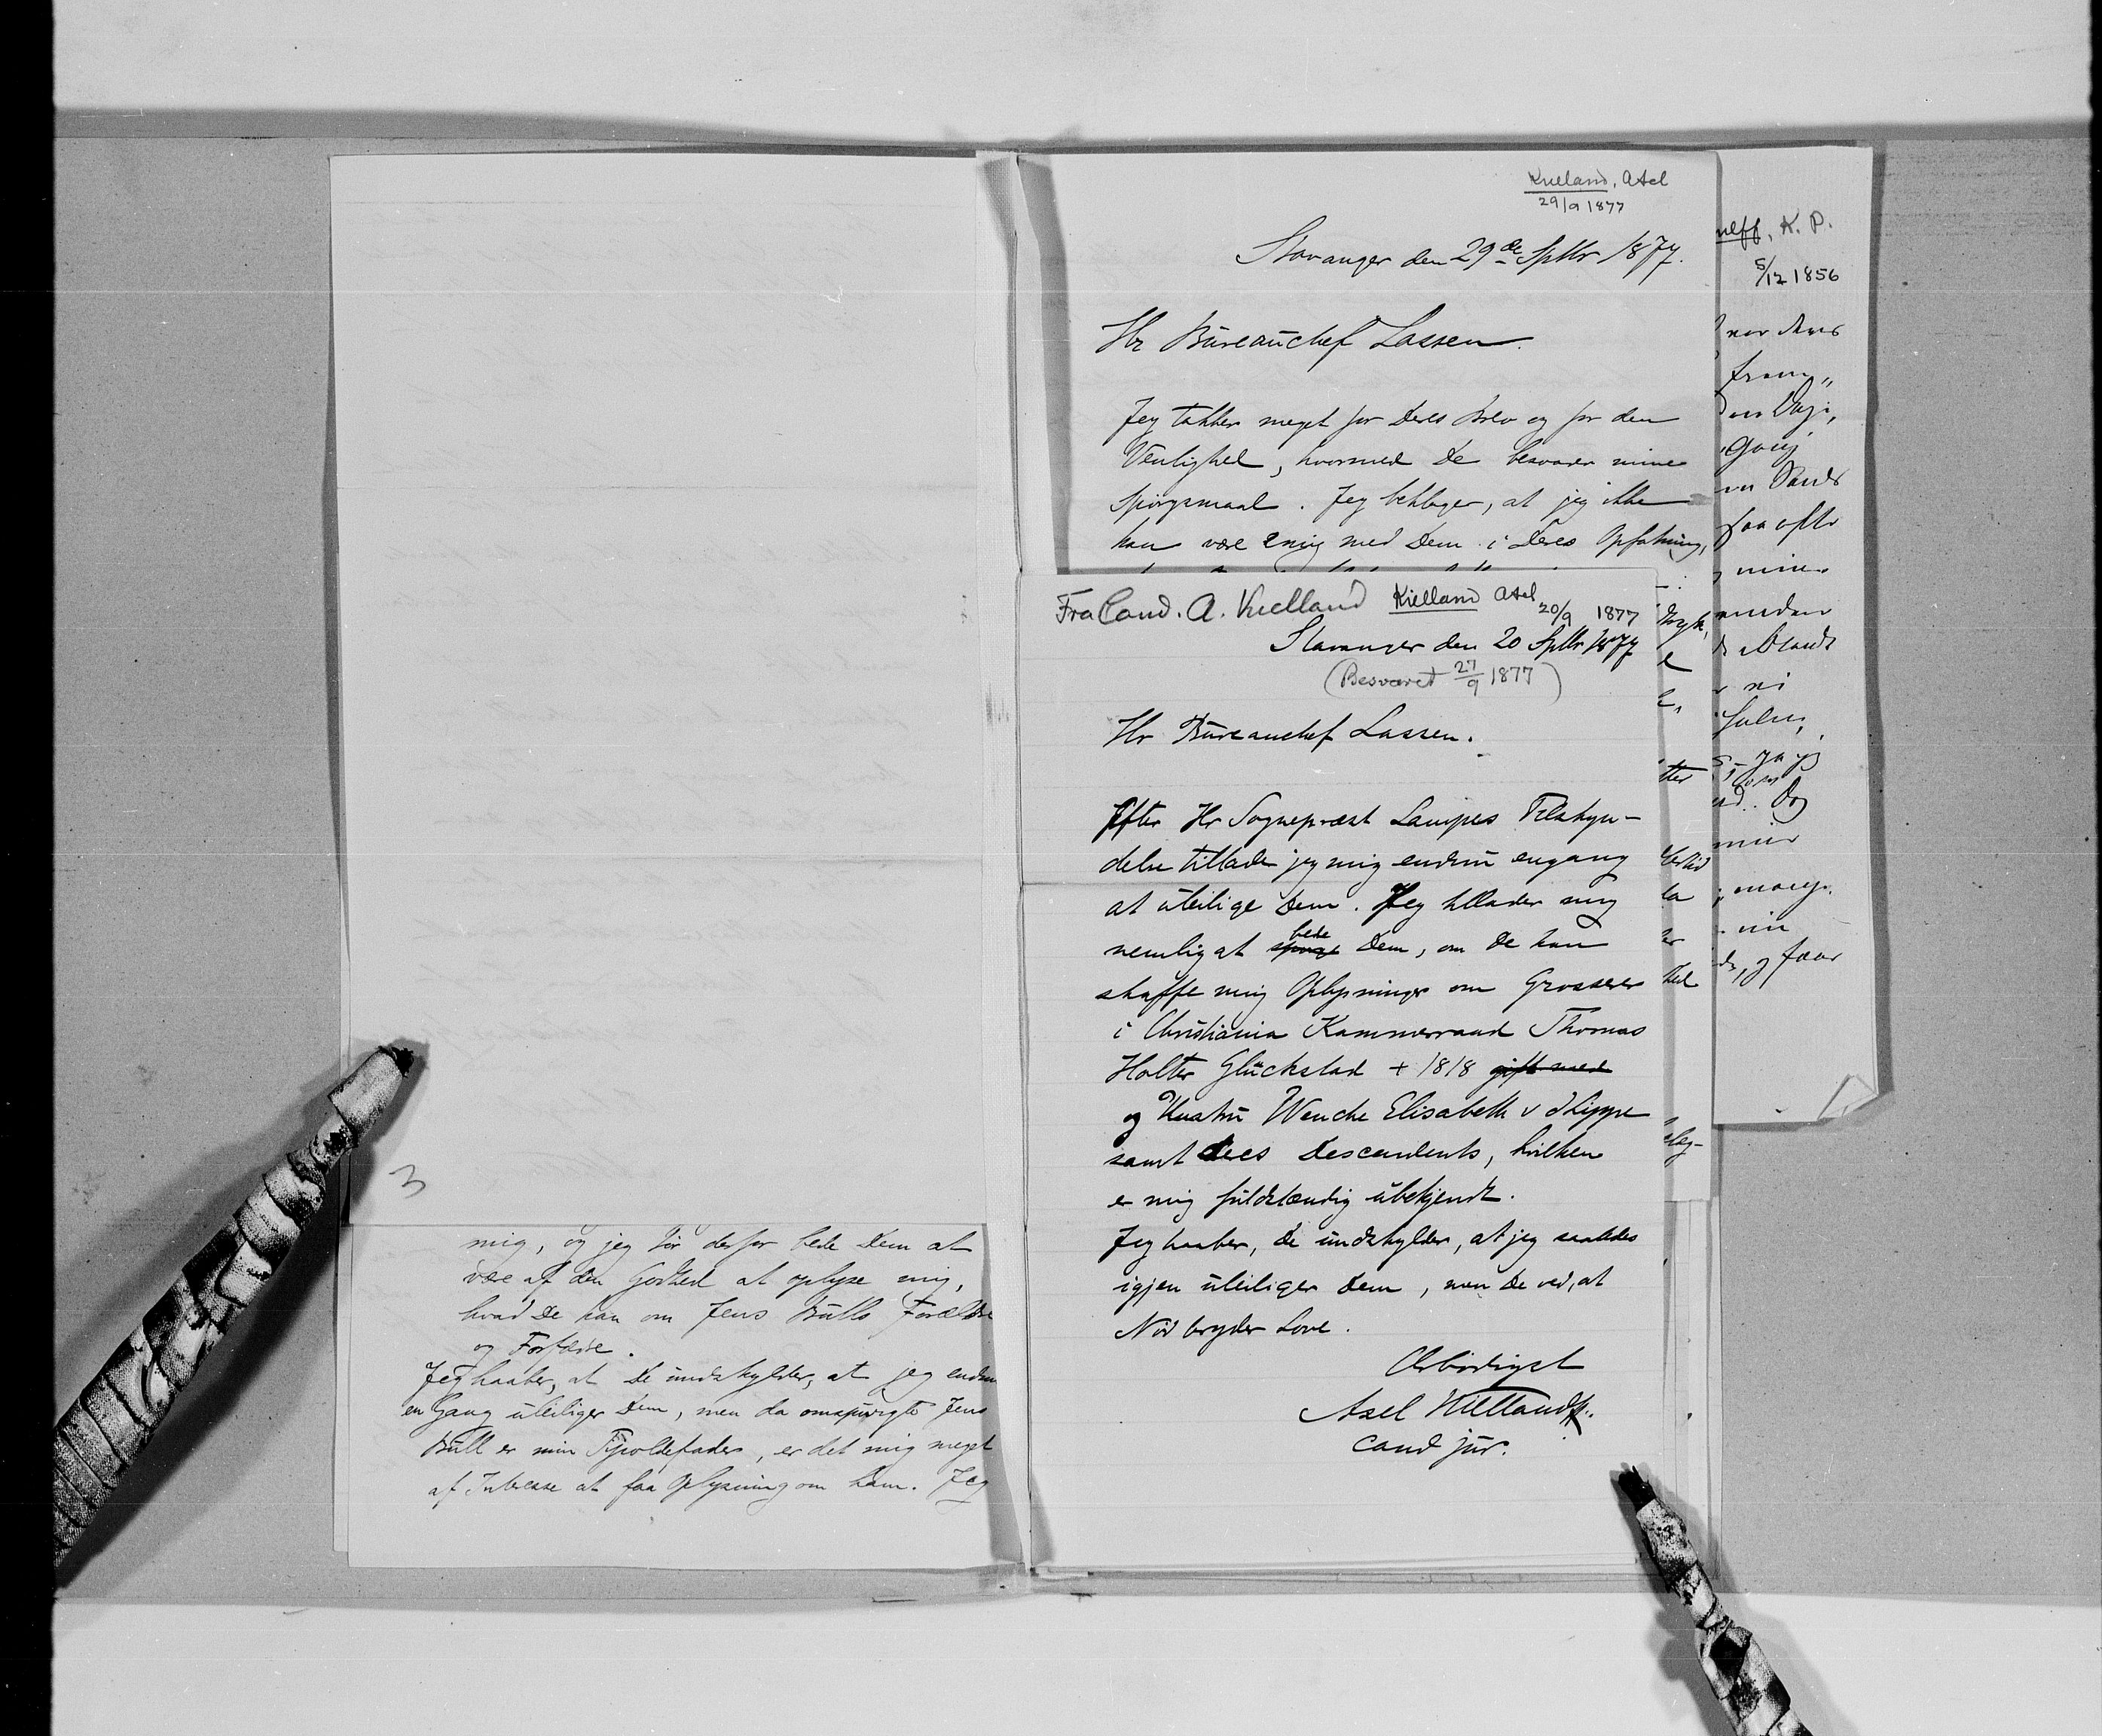 3
mig, og jeg tør derfor bede Dem at
være af den Godhed at oplyse mig,
hvad De kan om Jens Bulls Forældre
og Forfædre.
Jeg haaber, at De undskylder, at jeg endnu
en Gang uleiliger Dem, men da omspurgte Jens
Bull er min Tipoldefader, er det mig meget
af Interesse at faa Oplysning om ham. Jeg
Kielland, Axel
29/9 1877
Stavanger den 29de Sptbr 1877.
Hr Bureauchef Lassen.
Jeg takker meget for Deres Brev og for den
Venlighed, hvormed De besvarer mine
Spørgsmaal. Jeg beklager, at jeg ikke
kan være enig med Dem i Deres Opfatning,
Fra Cand. A. Kielland Kielland Axel 20/9 1877
Stavanger den 20 Sptbr 1877
(Besvaret 27/9 1877)
Hr Bureauchef Lassen.
Efter Hr Sogneprest Lampes Tilskyn-
delse tillader jeg mig endnu engang
at uleilige Dem. Jeg tillader mig
nemlig at spørge bede Dem, om De kan
skaffe mig Oplysninger om Grosserer
i Christiania Kammerraad Thomas
Holter Glückstad + 1818 gift med
og Hustru Wenche Elisabeth v d Lippe
samt deres Descendents, hvilken
er mig fuldstændig ubekjendt.
Jeg haaber, De undskylder, at jeg saaledes
igjen uleiliger Dem, men De ved, at
Nød bryder Love.
Ærbødigst
Axel Kielland
cand jur.
K. P.
5/12 1856